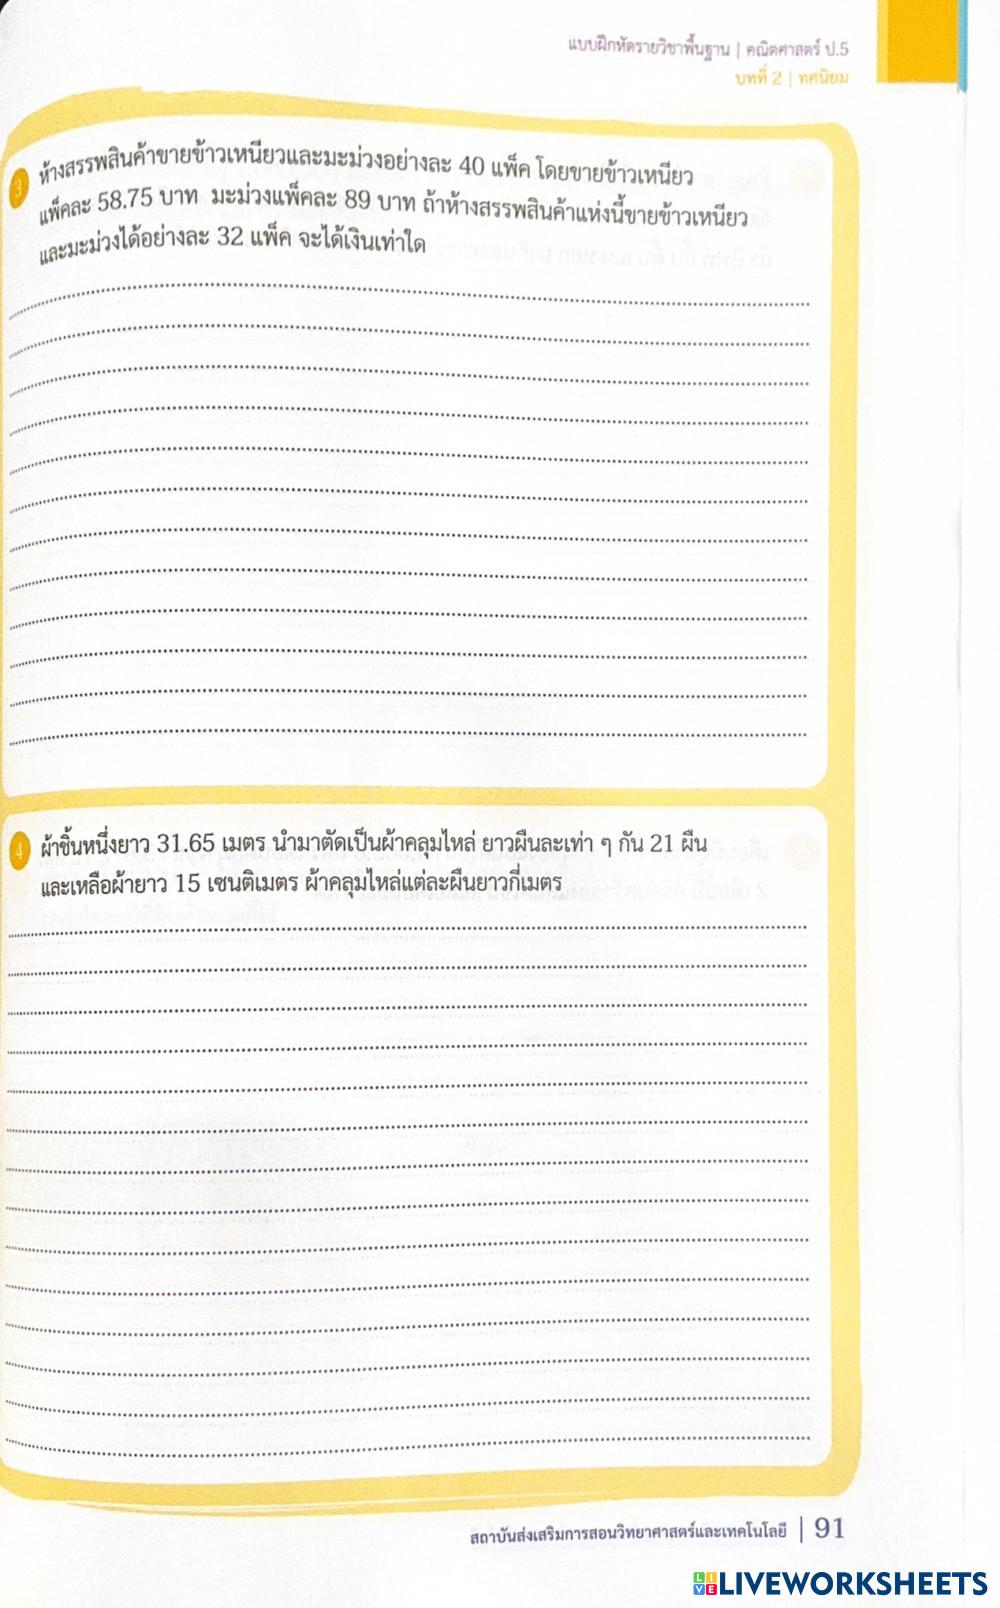 แบบฝึกหัดรายวิชาพื้นฐาน | คณิตศาสตร์ ป.5
บทที่ 2 | ทศนิยม
3 ห้างสรรพสินค้าขายข้าวเหนียวและมะม่วงอย่างละ 40 แพ็ค โดยขายข้าวเหนียว
แพ็คละ 58.75 บาท มะม่วงแพ็คละ 89 บาท ถ้าห้างสรรพสินค้าแห่งนี้ขายข้าวเหนียว
และมะม่วงได้อย่างละ 32 แพ็ค จะได้เงินเท่าใด
4 ผ้าชิ้นหนึ่งยาว 31.65 เมตร นำมาตัดเป็นผ้าคลุมไหล่ ยาวผืนละเท่า ๆ กัน 21 ผืน
และเหลือผ้ายาว 15 เซนติเมตร ผ้าคลุมไหล่แต่ละผืนยาวกี่เมตร
สถาบันส่งเสริมการสอนวิทยาศาสตร์และเทคโนโลยี | 91
LIVEWORKSHEETS